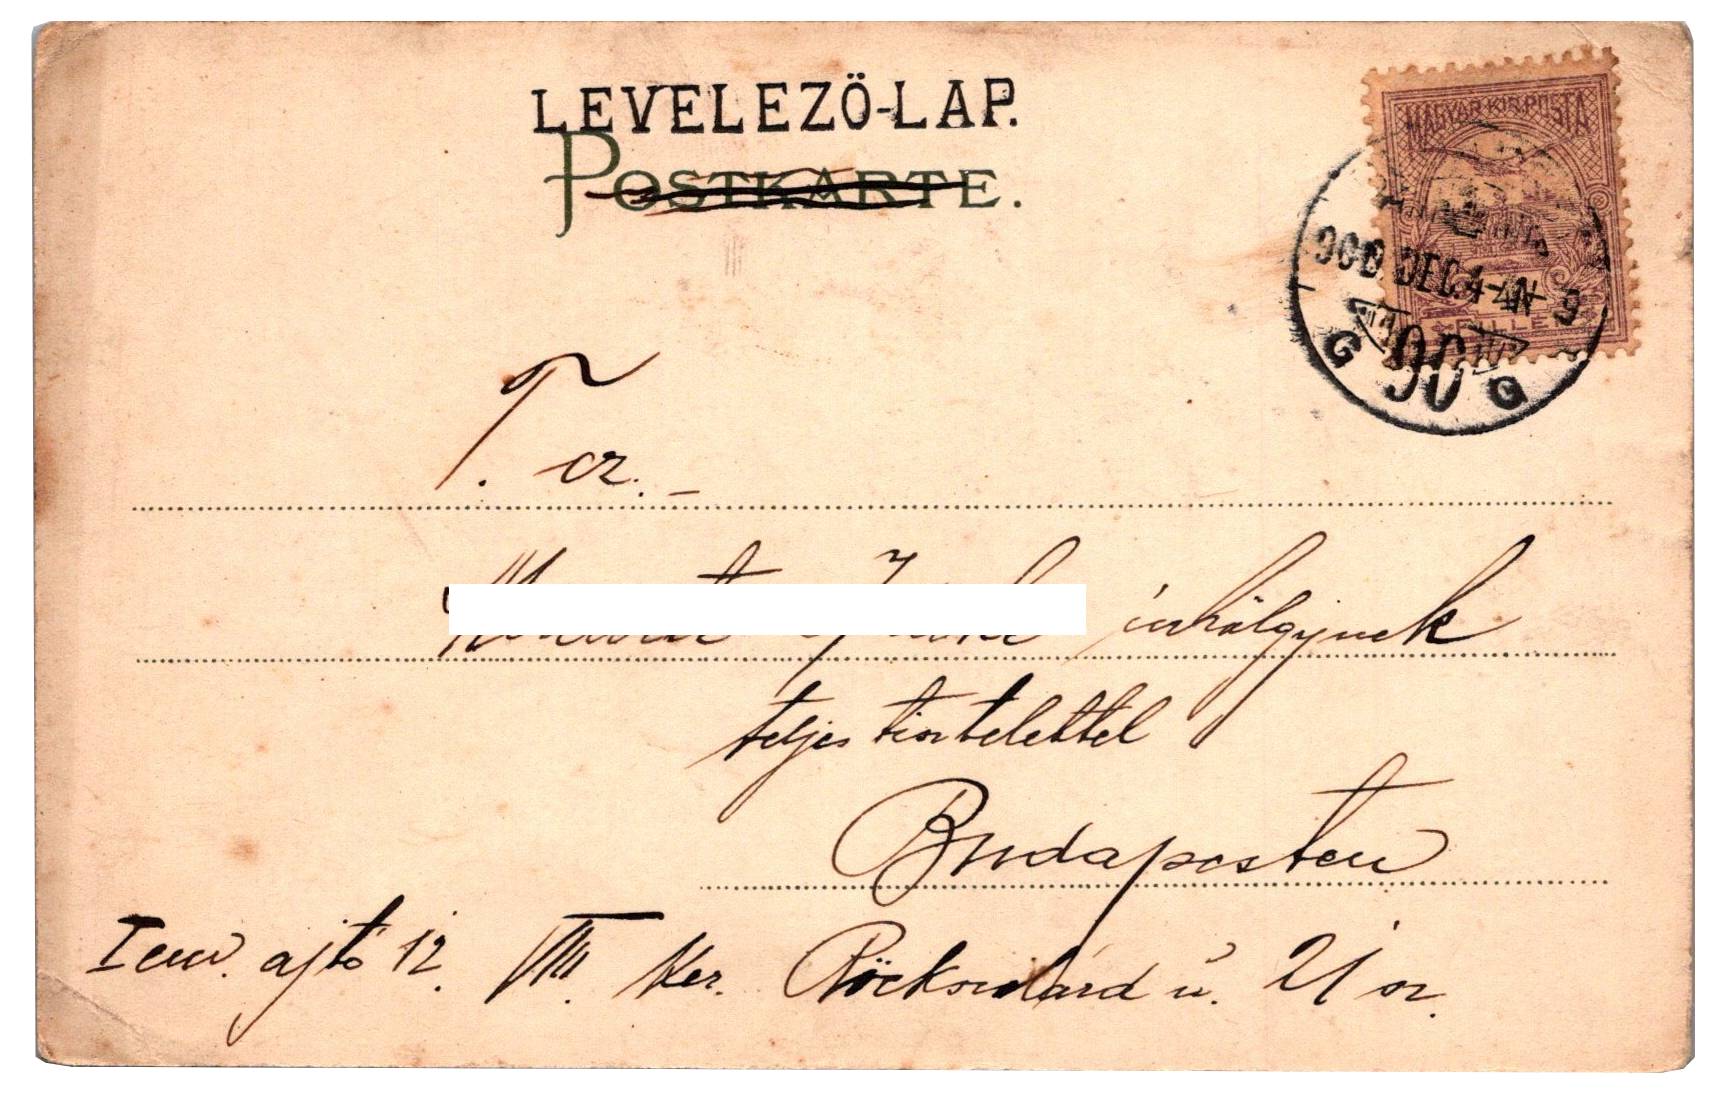 LEVELEZŐ-LAP.
POSTKARTE.
MAGYAR KIR. POSTA
900 DEC. 4
T. cz.
úrhölgynek
teljes tisztelettel
Budapesten
I em. ajtó 12. VIII. ker. Röckszilárd u. 21 sz.